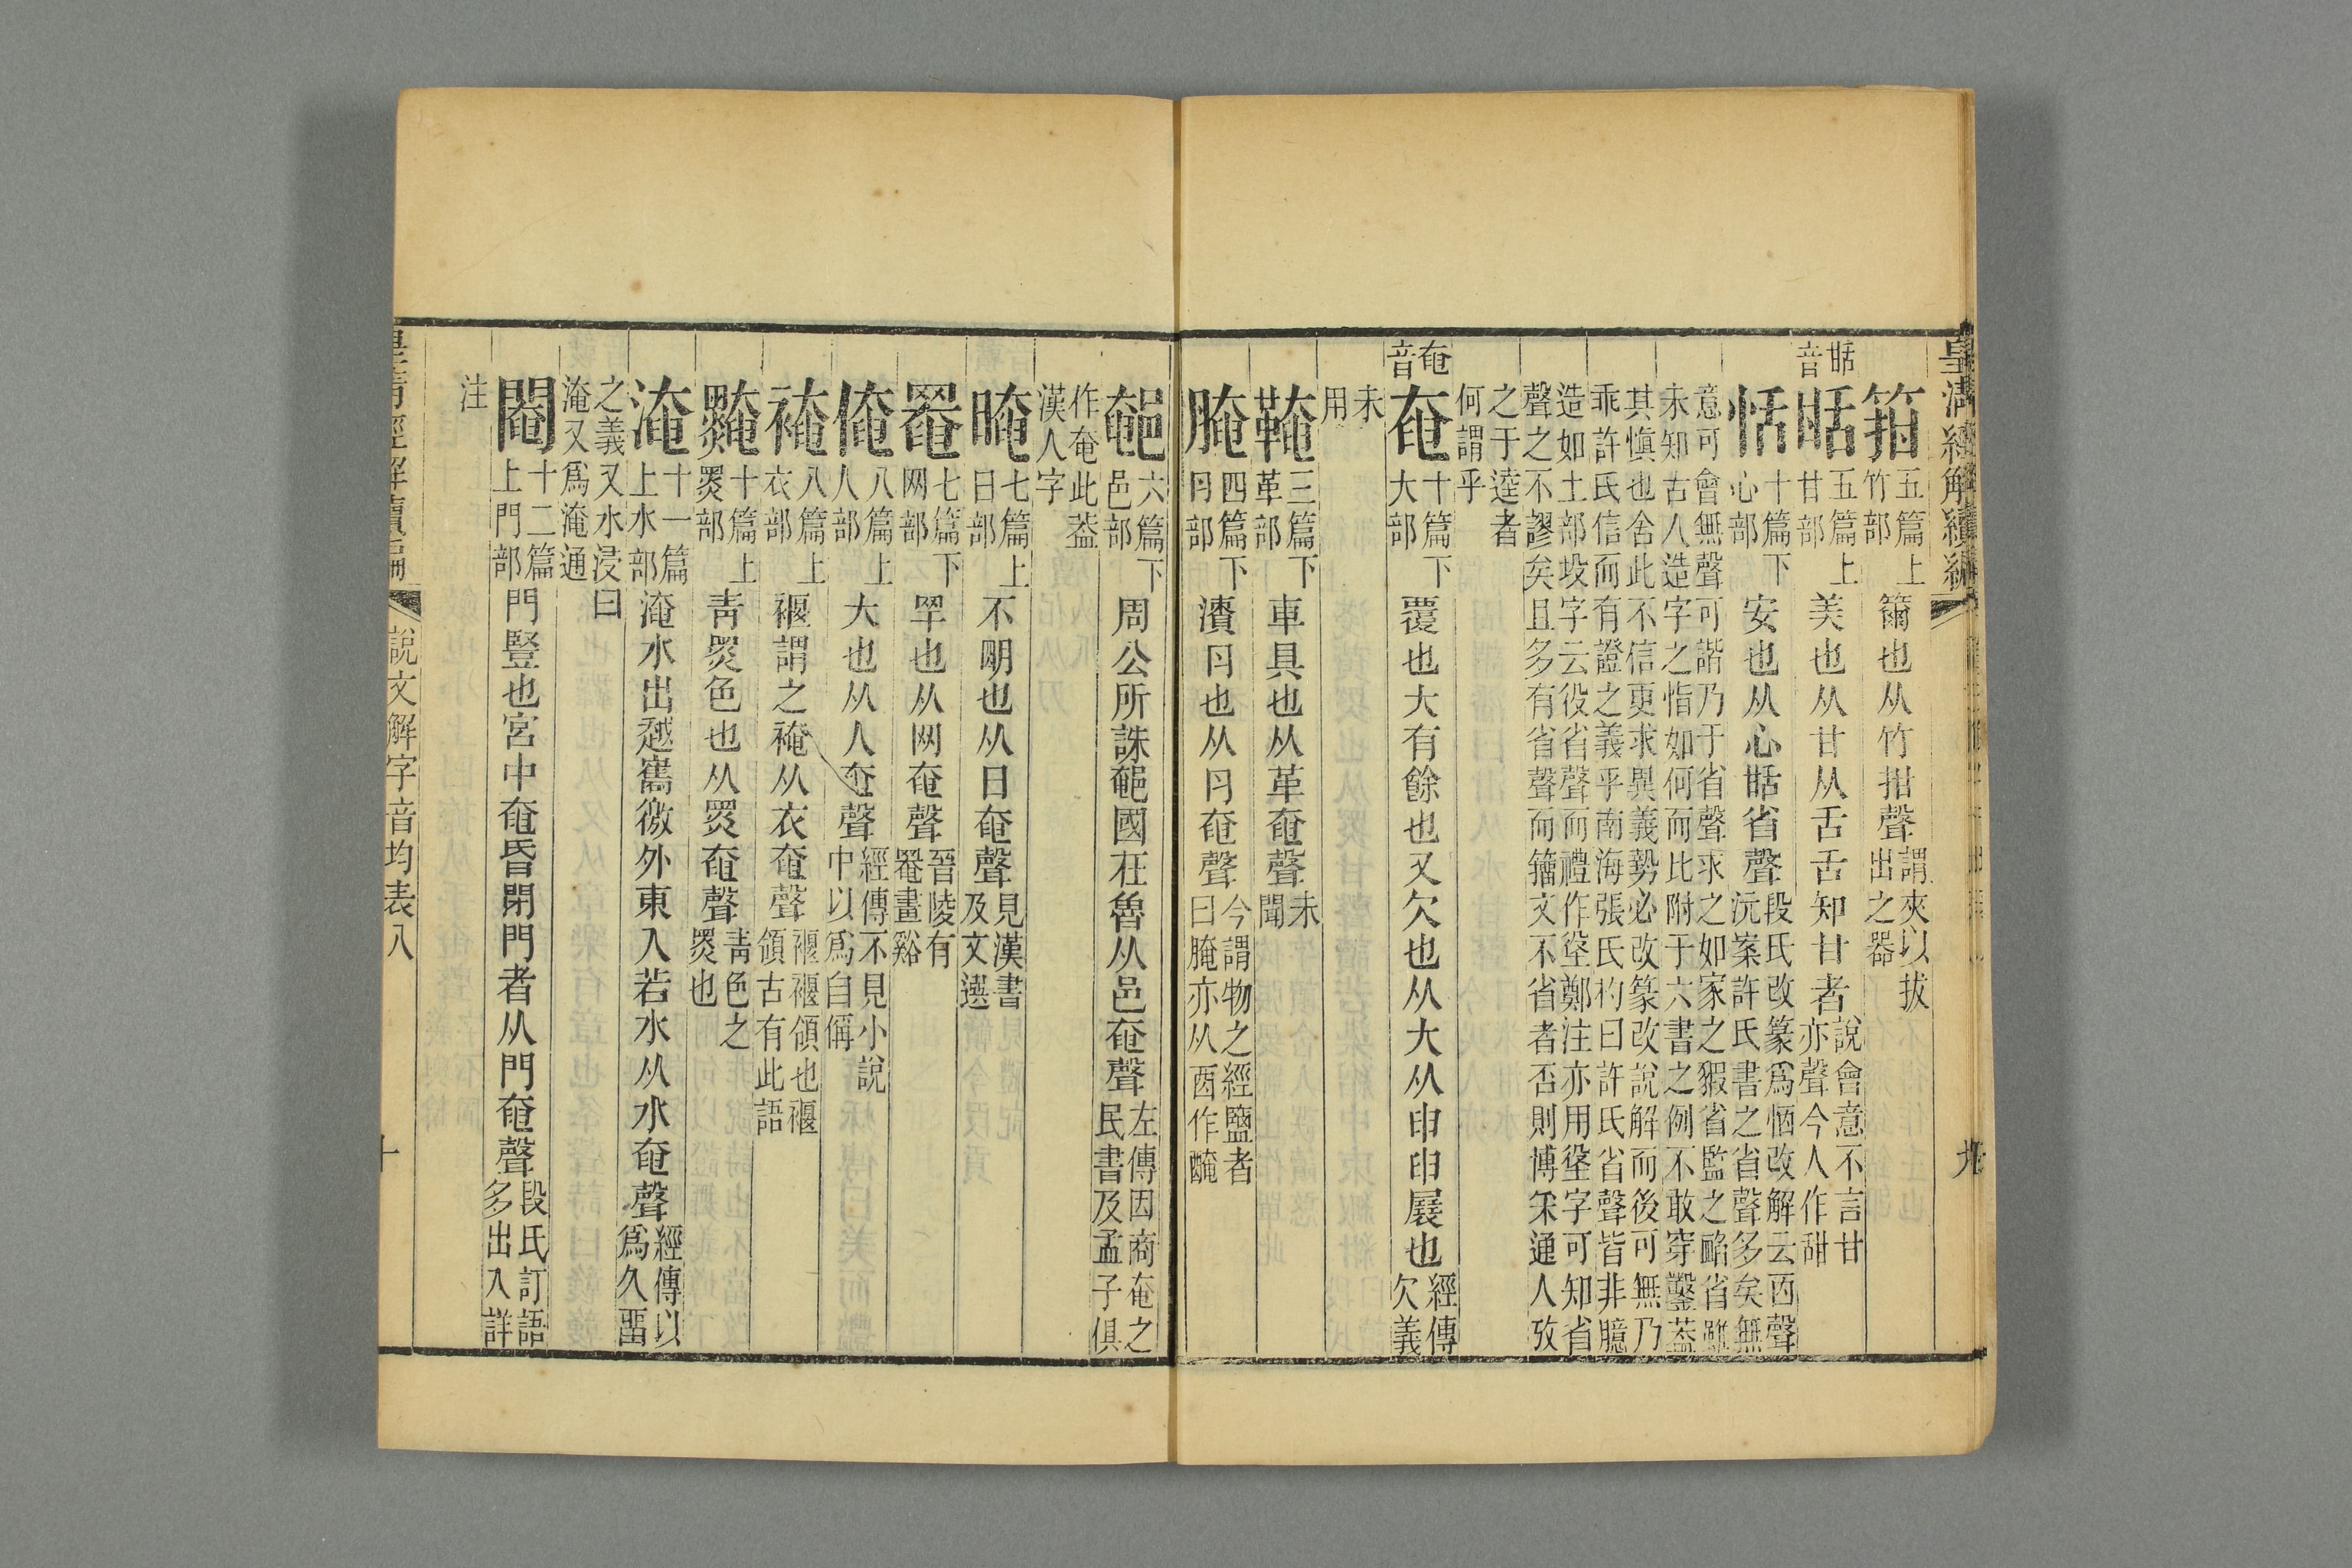 皇清經解續編
箝五篇上竹部籋也从竹拑聲謂夾以拔出之器
甛音
甛五篇上甘部美也从甘从舌舌知甘者說會意不言甘亦聲今人作甜
恬十篇下心部安也从心甛省聲段氏改篆爲㤁改解云㐁聲沅案許氏書之省聲多矣無
意可會無聲可諧乃于省聲求之如家之豭省監之䘓省
未知古人造字之恉如何而比附于六書之例不敢穿鑿葢
其愼也舍此不信更求異義勢必改篆改說解而後可無乃
乖許氏信而有證之義乎南海張氏杓曰許氏省聲皆非臆
造如土部坄字云役省聲而禮作垼鄭注亦用垼字可知省
聲之不謬矣且多有省聲而籒文不省者否則博采通人攷
之于逵者
何謂乎
奄音
奄十篇下大部覆也大有餘也又欠也从大从申申展也經傳欠義
未用
鞥三篇下革部車具也从革奄聲未聞
腌四篇下肉部漬肉也从肉奄聲今謂物之經鹽者曰腌亦从酉作醃
郁六篇下邑部周公所誅郁國在魯从邑奄聲左傳因商奄之民書及孟子俱
作奄此葢
漢人字
晻七篇上日部不明也从日奄聲見漢書及文選
罨七篇下网部罕也从网奄聲晉陵有罨畫谿
俺八篇上人部大也从人奄聲經傳不見小說中以爲自偁
裺八篇上衣部褗謂之裺从衣奄聲褗褗領也褗領古有此語
黤十篇上黑部青黑色也从黑奄聲青色之黑也
淹十一篇上水部淹水出越巂徼外東入若水从水奄聲經傳以爲久畱
之義又水浸曰
淹又爲淹通
閹十二篇上門部門豎也宮中奄昏閉門者从門奄聲段氏訂語多出入詳
注
皇清經解續編
說文解字音均表八
十